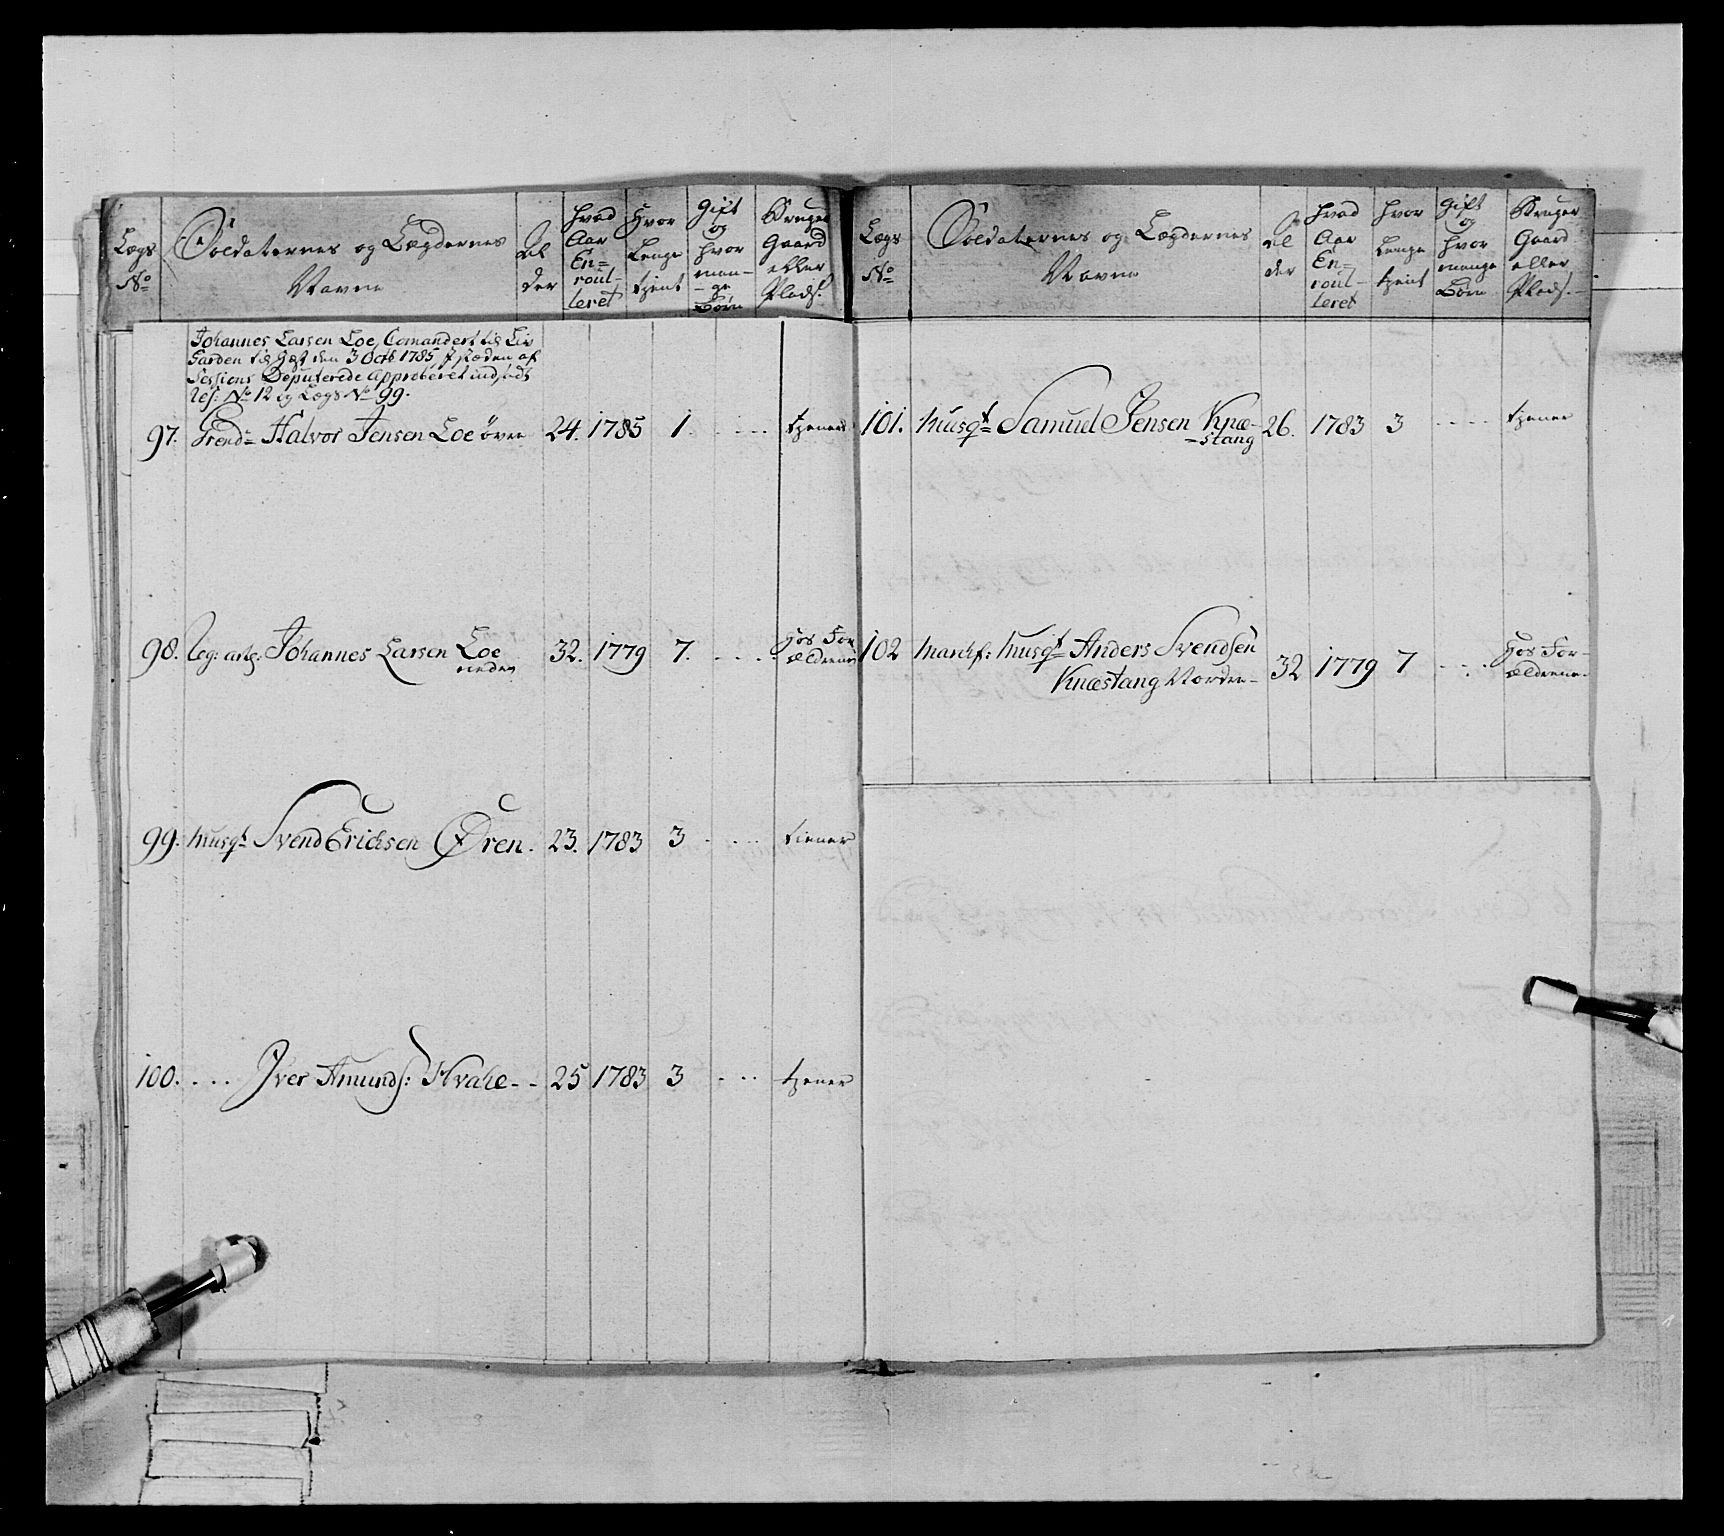 Lægs No
Soldaternes og Lægdernes Navne
Al der
hvad Aar En= roul- leret
Hvor Lenge tjent
Gift og hvor man- -ge Börn
Bruger Gaard eller Plads.
Johannes Larsen Loe, Comandert til Liv
Garden til Hæst den 3 Octb 1785, I stæden af
Sessions Deputerede Approberet indsadt
Res: No 12 og Lægs No 99.
97. Grend: Halvor Jensen Loe övre 24. 1785 1. . . . . tjener
98. Reg: art: Johannes Larsen Loe 32. 1779 7. . . . . Hos For
neden ældrene
99. Musqt Svend Erichsen Øren. 23. 1783 3 . . . . tiener
100. . . . Iver Amunds: Hvahe - - 25 1783 3 . . . tjener
Lægs No
Soldaternes og Lægdernes Navne
Al der
hvad Aar En= roul- leret
Hvor Lenge tjent
Gift og hvor mange Börn
Bruger Gaard eller Plads.
101. Musqt Samuel Jensen Knæ- 26. 1783 3 . . . . tjener
-stang
102 Musqt Anders Svendsen 32 1779 7 . . . Hos For-
Knæstang Nordre- ældrene.